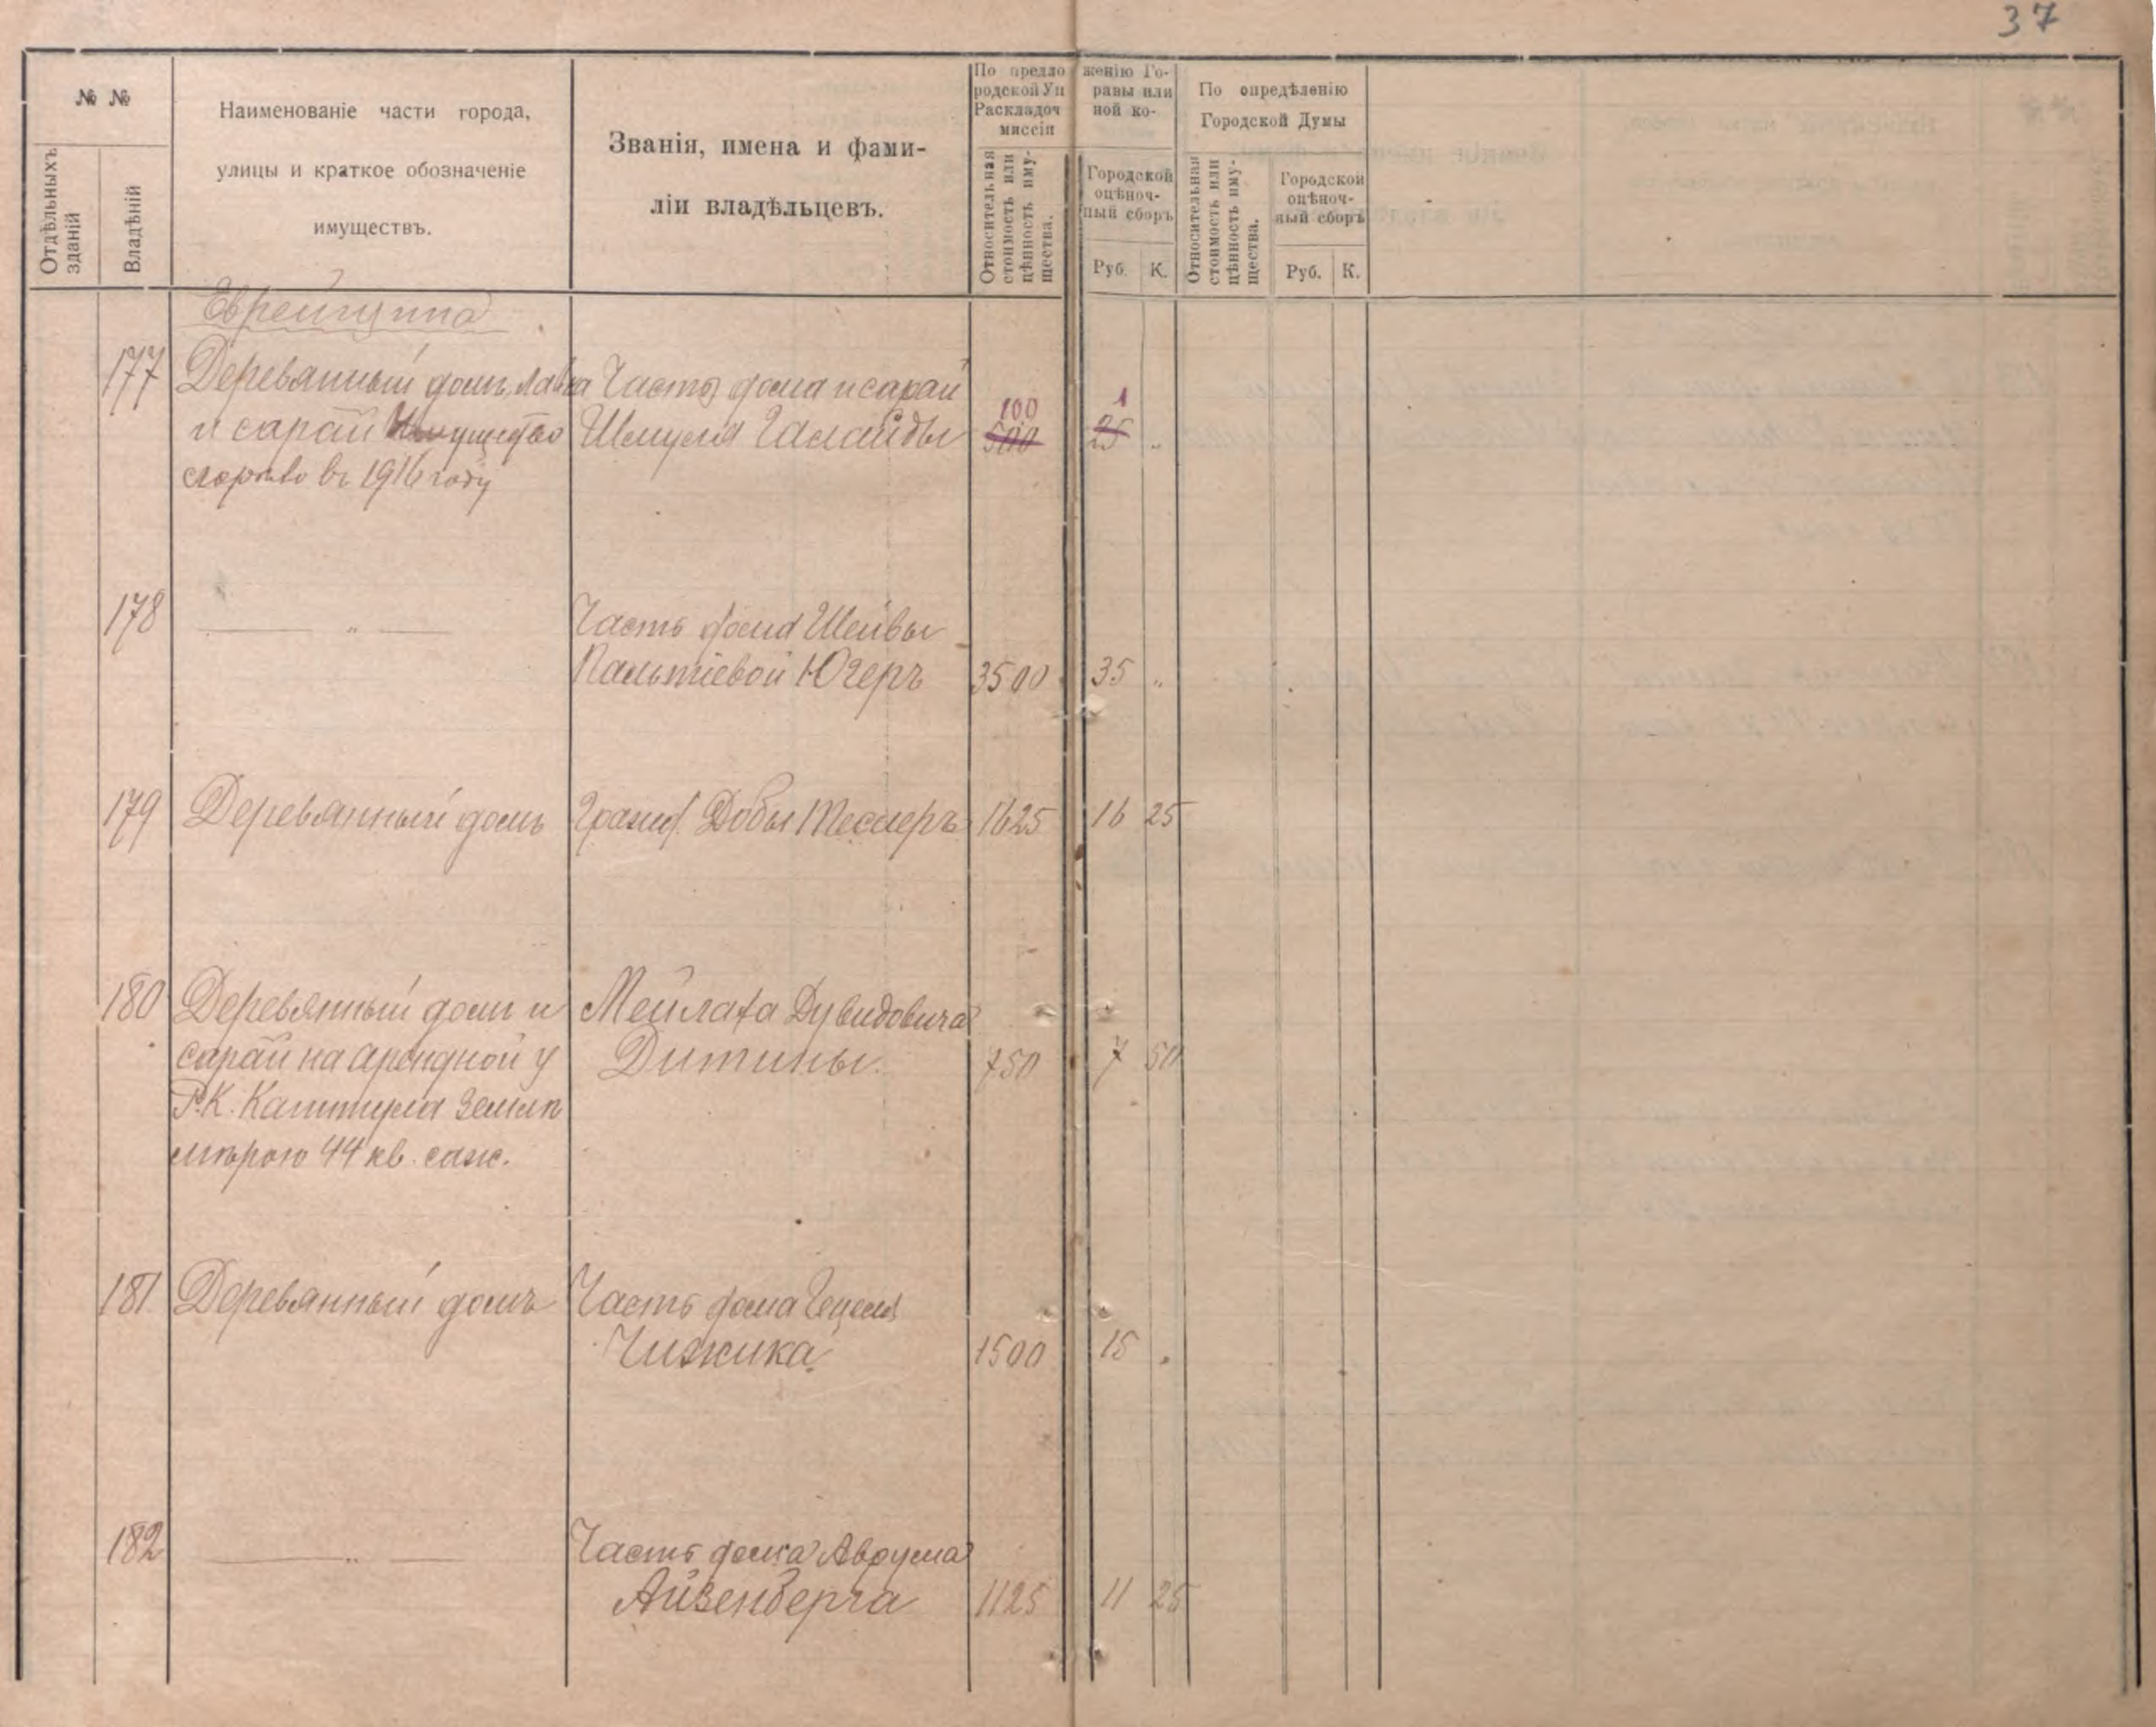 37
№ №
Отдѣльныхъ зданій
Владѣній
Наименованіе части города,
улицы и краткое обозначеніе
имуществъ.
Званія, имена и фами-
ліи владѣльцевъ.
По предло женію Го-
родской Уп равы или
Раскладоч ной ко-
миссіи
Относительная
стоимость или
цѣнность иму-
щества.
Городской
оцѣноч-
ный сборъ
Руб. К.
По опредѣленію
Городской Думы
Относительная
стоимость или
цѣнность иму-
щества.
Городской
оцѣноч-
ный сборъ
Руб. К.
Еврейщина
177 Деревянный домъ, лавка Часть дома и сарай
100 1
и сарай Имущество Шмуля 500 25 "
сгорѣло въ 1916 году
178 — " — Часть дома Шейвы
Пальтіевой Югеръ 3500 35 "
179 Деревянный домъ Добы Теслеръ 1625 16 25
180 Деревянный домъ и Мейлаха Дувидовича
сарай на арендной у Дитины. 750 7 50
Р.К. Капитула землѣ
мѣрою 44 кв. саж.
181 Деревянный домъ Часть дома Гецеля
Чижика 1500 15 "
182 — " — Часть дома Аврума
Айзенберга 1125 11 25